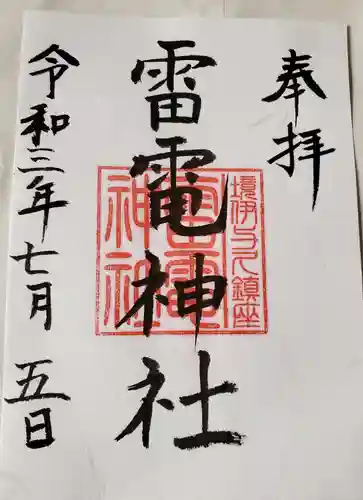 奉拝
雷電神社
境伊与久鎮座
雷電
神社
令和三年七月五日